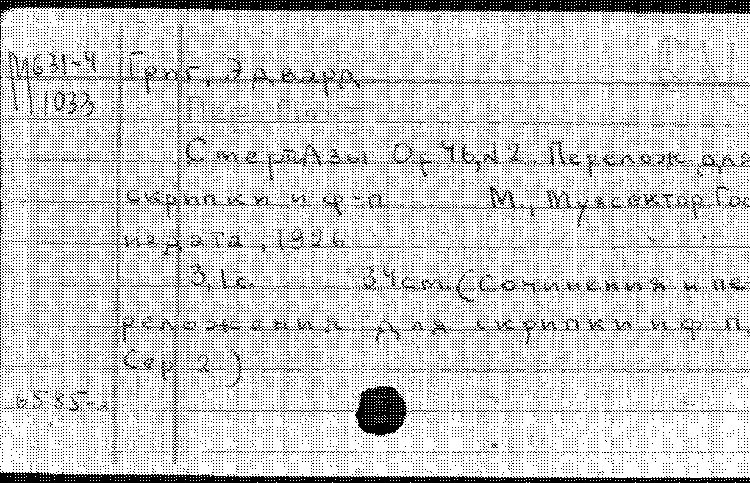 М631-4
1033
Григ, Эдвард
Стережзы Ор 46, №2. Перелож. для
скрипки и ф-п. М., Музсектор Гос
издата, 1926
3, 1 с. 34 см. (Сочинения и пе
реложения для скрипки и ф п,
Сер 2.)